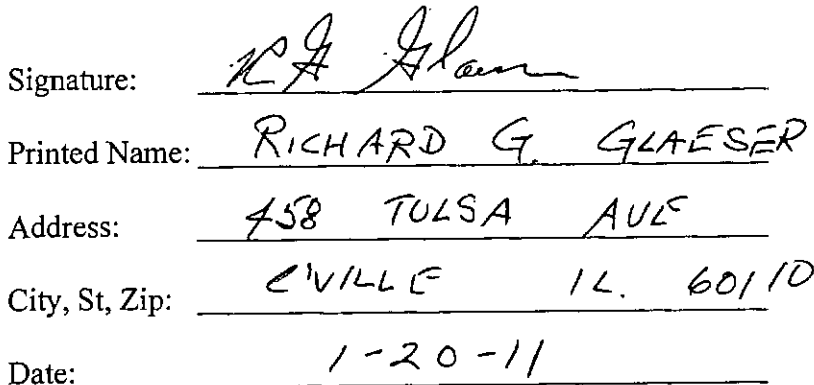 Signature: RG Glaeser
Printed Name: RICHARD G. GLAESER
Address: 458 TULSA AVE
City, St, Zip: C'VILLE IL. 60110
Date: 1-20-11